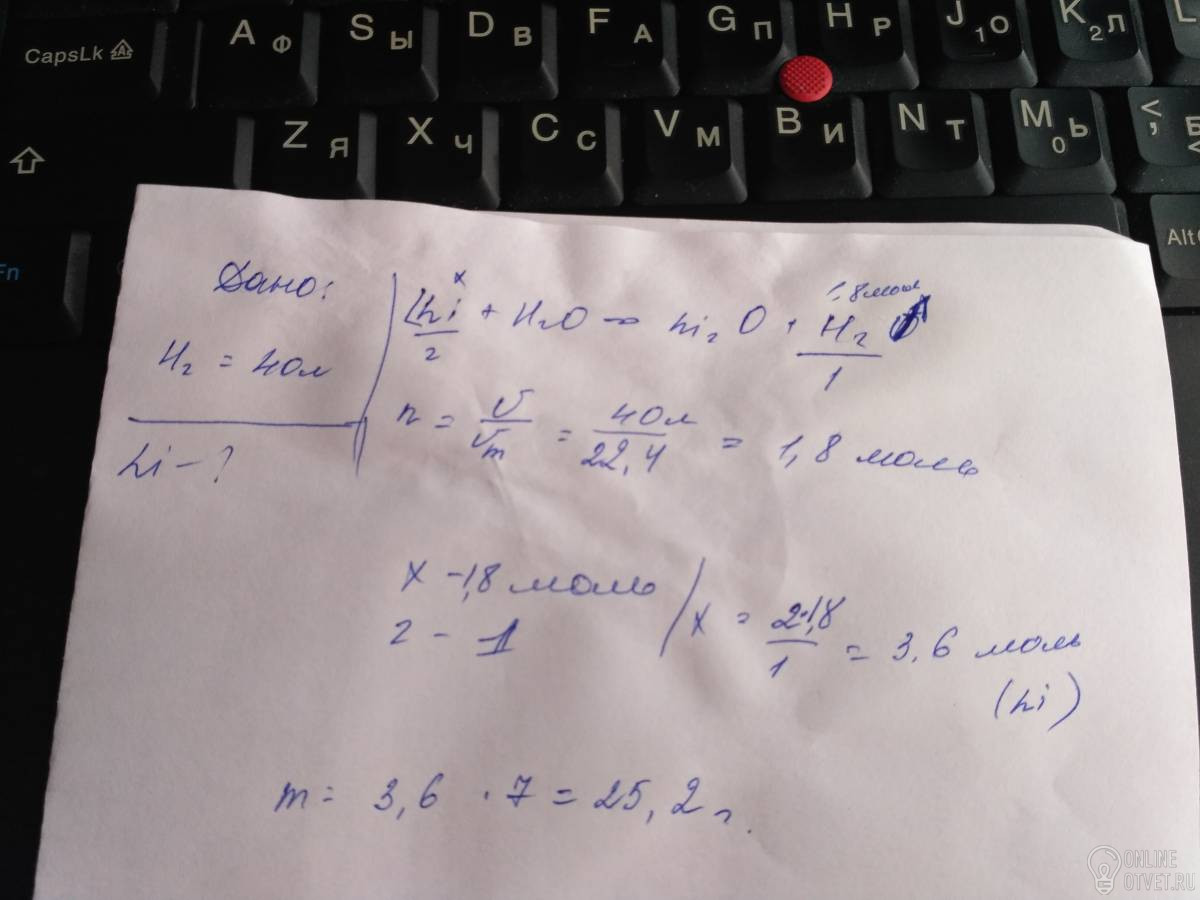 CapsLk A Ф S Ы D В F А G П H Р J 1 О K 2 Л L
Z Я X Ч C С V М B И N Т M 0 Ь < , Б
Fn Alt
Дано:
H₂ = 40л
Li - ?
x 1,8 моль
2Li + H₂O → Li₂O + H₂ ↑
2 1
n = V/Vm = 40л/22,4 = 1,8 моль
x - 1,8 моль
2 - 1
x = 2·1,8/1 = 3,6 моль
(Li)
m = 3,6 · 7 = 25,2 г.
ONLINE
OTVET.RU